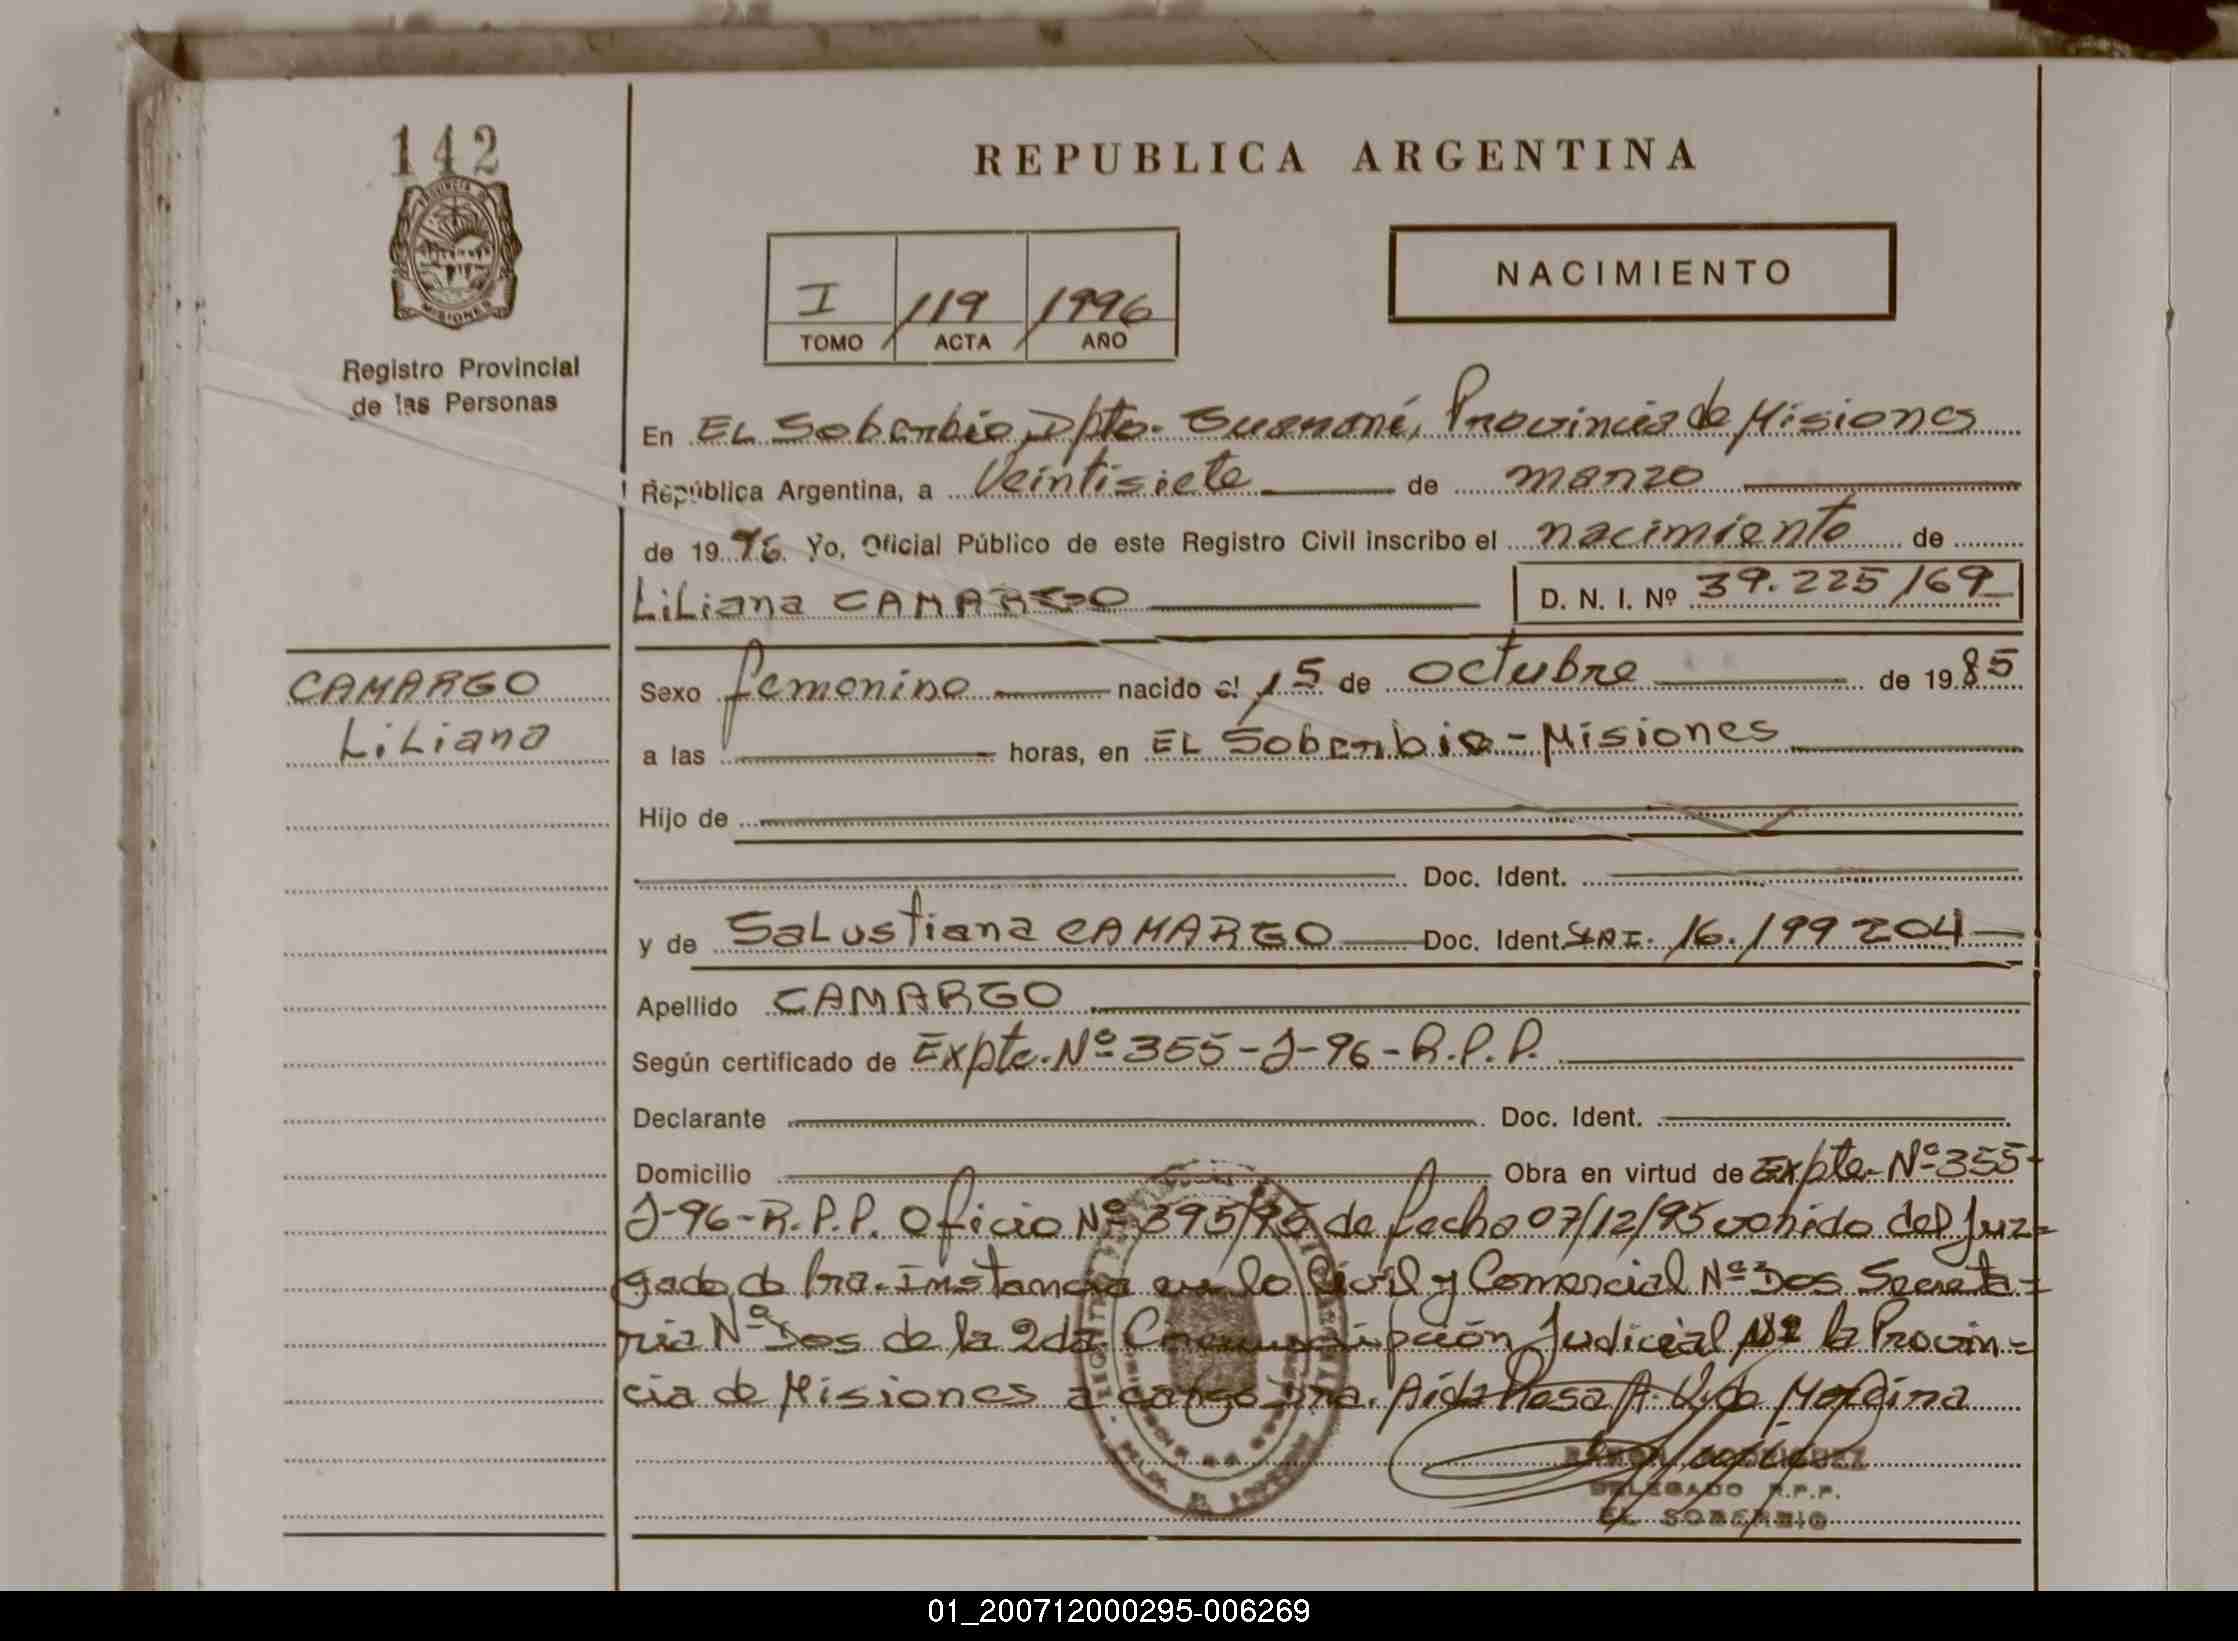 142
PROVINCIA DE
MISIONES
Registro Provincial
de las Personas
CAMARGO
Liliana
REPUBLICA ARGENTINA
I 119 1996
TOMO ACTA AÑO
NACIMIENTO
En EL Soberbio, Dpto. Guaraní, Provincia de Misiones
República Argentina, a Veintisiete de marzo
de 1996. Yo, Oficial Público de este Registro Civil inscribo el nacimiento de
Liliana CAMARGO D. N. I. Nº 39.225169
Sexo femenino nacido el 15 de octubre de 1985
a las horas, en EL Soberbio - Misiones
Hijo de
Doc. Ident.
y de Salustiana CAMARGO Doc. Ident. 16.199204
Apellido CAMARGO
Según certificado de Expte. Nº 355-J-96-R.P.P.
Declarante Doc. Ident.
Domicilio Obra en virtud de Expte. Nº 355-
J-96-R.P.P. Oficio Nº 395/95 de fecha 07/12/95 venido del Juz-
gado de 1ra. Instancia en lo Civil y Comercial Nº Dos Secreta-
ria Nº Dos de la 2da Circunscripción Judicial de la Provin-
cia de Misiones a cargo Dra. Aida Rosa A. V. de Medina
DELEGADO R.P.P.
EL SOBERBIO
01_200712000295-006269